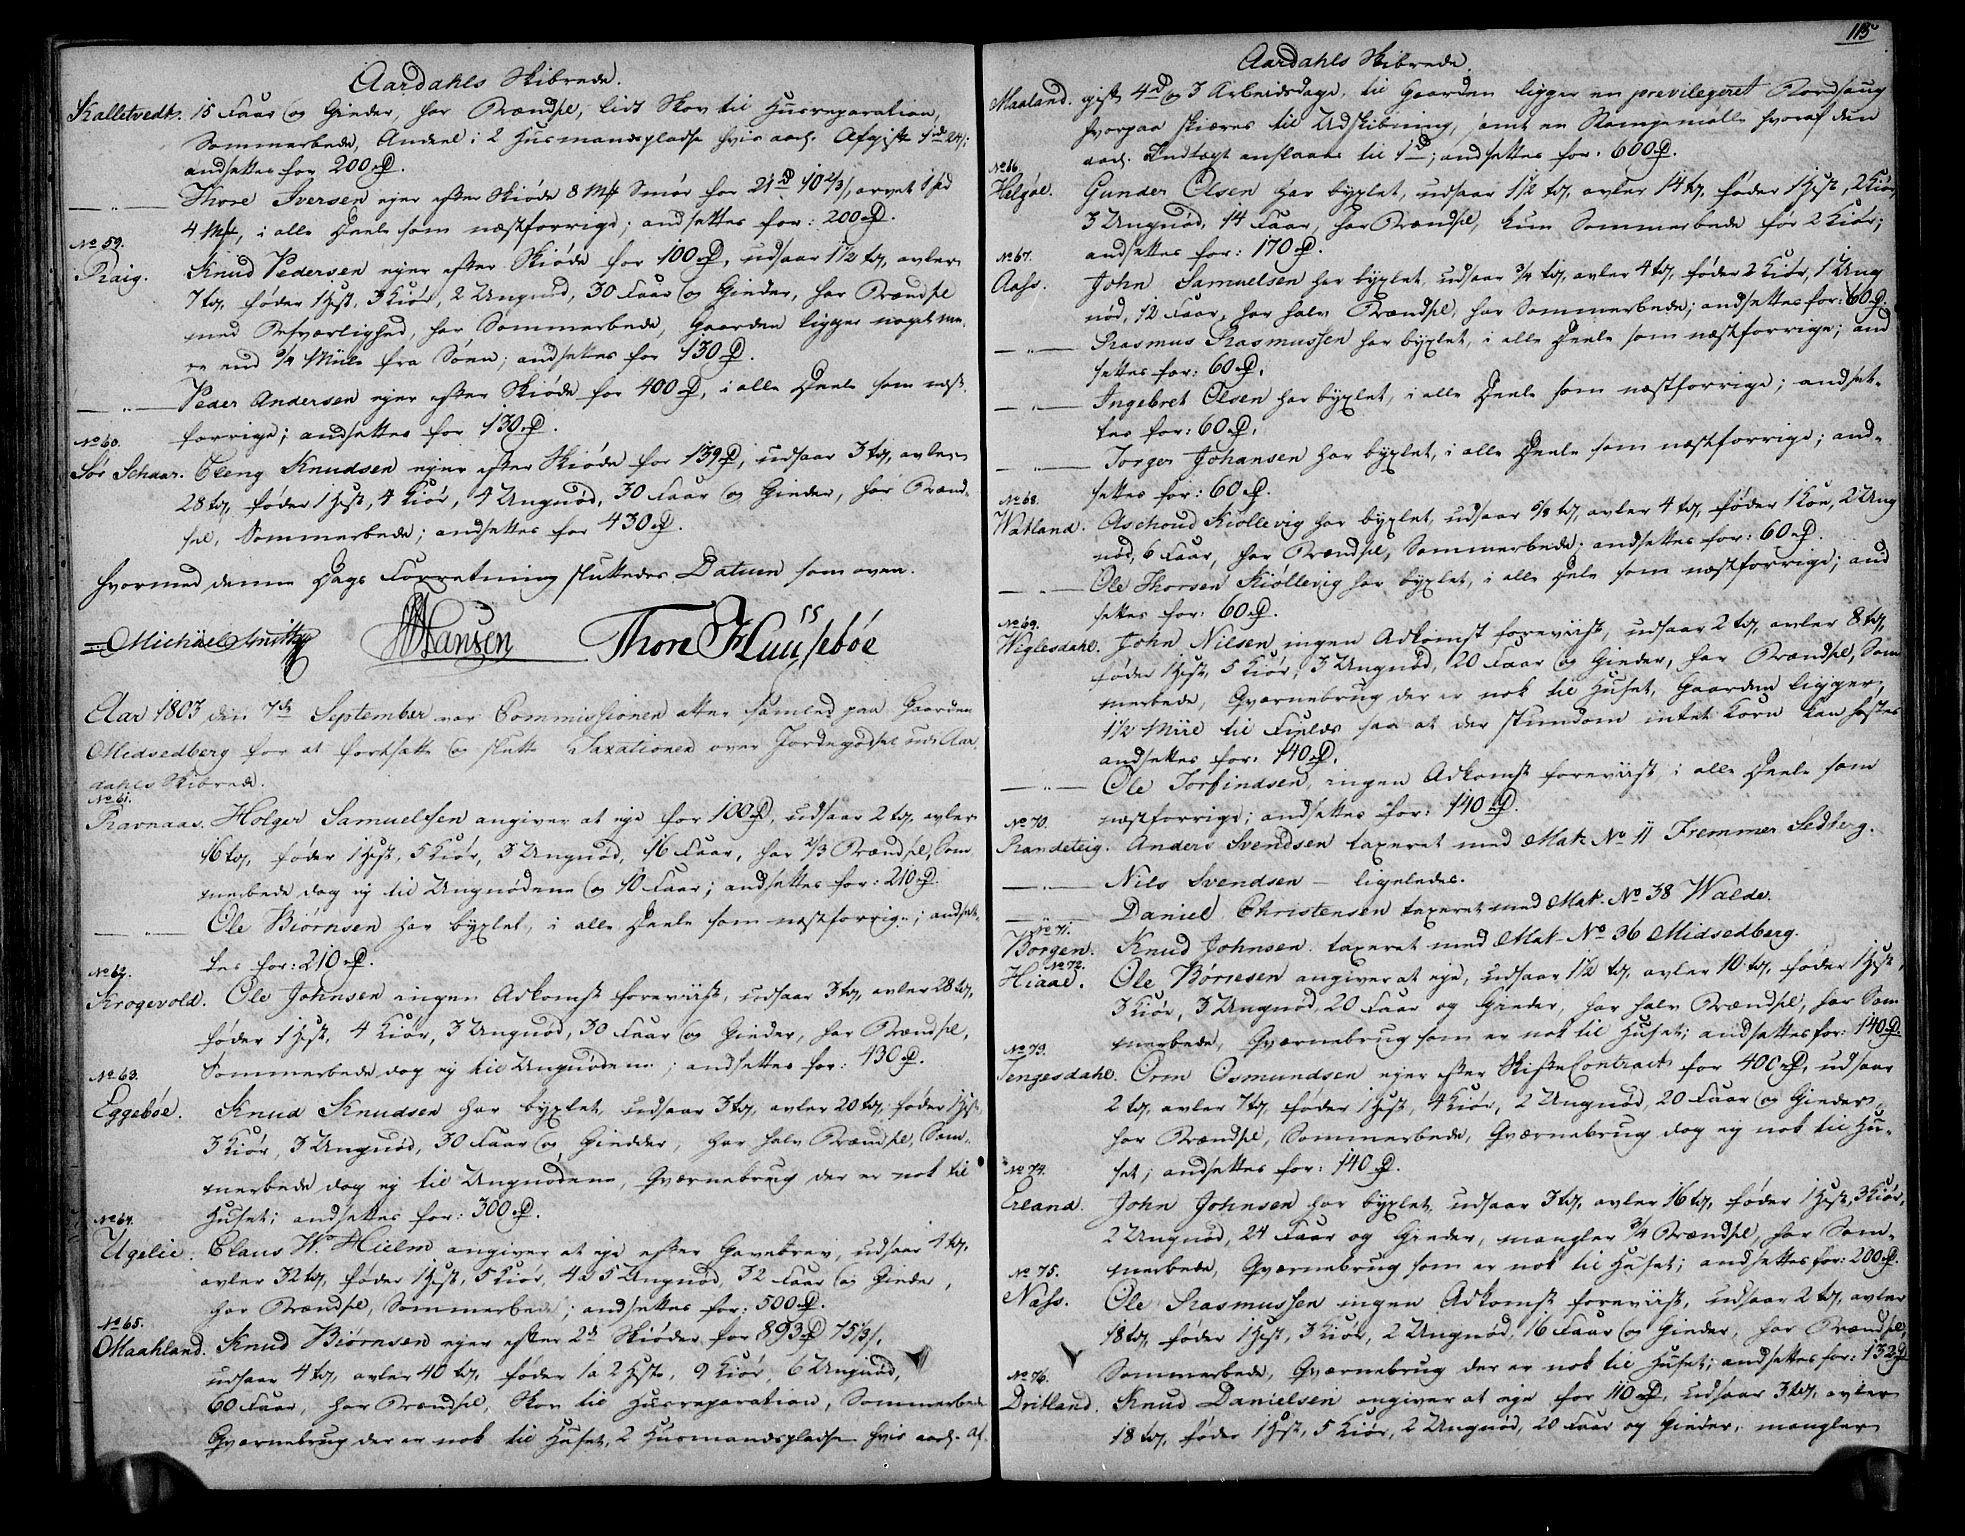 Aardahls Skibrede.
Kalletvedt. 15 Faar og Gieder, har Brændsel, lidt Skov til Huusreparation,
Sommerbede, Andeel i 2 Husmandspladse hvis aarl. Afgift
andsættes for 200 rd.
— " — Thore Iversen ejer efter Skiøde 8 Mrk Smør for 21 rd 10 2/3 s, arvet
4 Mrk, i alle Deele som næstforrige; andsættes for: 200 rd.
No 59.
Raig. Knud Pedersen ejer efter Skiøde for 100 rd, udsaar 1 1/2 tdr, avler
7 tdr, føder 1 Hest, 3 Kiør, 2 Ungnød, 30 Faar og Gieder, har Brændsel
med Besværlighed, har Sommerbede, Gaarden ligger noget me-
re end 3/4 Miil fra Søen; andsættes for 130 rd.
— " — Peder Andersen ejer efter Skiøde for 400 rd, i alle Deele som næst-
forrige; andsættes for 130 rd.
No 60.
Sør Schaar. Eleng Knudsen ejer efter Skiøde for 139 rd, udsaar 3 tdr, avler
28 tdr, føder 1 Hest, 4 Kiør, 4 Ungnød, 30 Faar og Gieder, har Brænd-
sel, Sommerbede; andsættes for 430 rd.
Hvormed denne Dags Forretning sluttedes Datum som oven.
Michael Smith Hansen Thore Huussebøe
Aar 1803 den 7de September var Commissionen atter samled paa Gaarden
Midsedberg for at fortsætte og slutte Taxationen over Jordegodset udi Aar-
dahls Skibrede.
No 61.
Ravnaas. Holger Samuelsen angiver at eje for 100 rd, udsaar 2 tdr, avler
16 tdr, føder 1 Hest, 5 Kiør, 3 Ungnød, 16 Faar, har 2/3 Brændsel, Som-
merbede dog ej til Ungnødene og 10 Faar; andsættes for: 210 rd.
— " — Ole Biørnsen har byxlet, i alle Deele som næstforrige; andsæt-
tes for: 210 rd.
No 62.
Krogevold. Ole Johnsen ingen Adkomst foreviist, udsaar 3 tdr, avler 28 tdr,
føder 1 Hest, 4 Kiør, 3 Ungnød, 30 Faar og Gieder, har Brændsel,
Sommerbede dog ej til Ungnødene; andsættes for: 430 rd.
No 63.
Eggebøe. Knud Knudsen har byxlet, udsaar 3 tdr, avler 20 tdr, føder 1 Hest,
3 Kiør, 3 Ungnød, 30 Faar og Giedder, har halv Brændsel, Som-
merbede dog ej til Ungnødene, Qværnebrug der er nok til
Huset; andsættes for: 300 rd.
No 64.
Ugelie. Claus W. Hielm angiver at eje efter Gavebrev, udsaar 4 tdr,
avler 32 tdr, føder 1 Hest, 5 Kiør, 4 a 5 Ungnød, 32 Faar og Gieder,
har Brændsel, Sommerbede; andsættes for: 500 rd.
No 65.
Maahland. Knud Biørnsen ejer efter 2de Skiøder for 893 rd 75 1/3 s,
udsaar 4 tdr, avler 40 tdr, føder 1 a 2 Heste, 9 Kiør, 6 Ungnød,
60 Faar, har Brændsel, Skov til Huusreparation, Sommerbede
Qværnebrug der er nok til Huset, 2 Husmandspladse hvis aarl. Af-
115
Aardahls Skibrede.
Maaland. gift 4 rd og 3 Arbeidsdage, til Gaarden ligger en previlegeret Bordsaug
hvorpaa skiæres til Udskibning, samt en Stampemølle hvoraf den
aarl. Indtægt anslaaes til 1 rd; andsættes for: 600 rd.
No 66.
Helgøe. Gunder Olsen har byxlet, udsaar 1 1/2 tdr, avler 14 tdr, føder 1 Hest, 2 Kiør,
3 Ungnød, 14 Faar, har Brændsel, kun Sommerbede for 2 Kiør;
andsættes for: 170 rd.
No 67.
Aass. John Samuelsen har byxlet, udsaar 3/4 tdr, avler 4 tdr, føder 2 Kiør, 1 Ung-
nød, 12 Faar, har halv Brændsel, har Sommerbede; andsættes for: 60 rd.
— " — Rasmus Rasmussen har byxlet, i alle Deele som næstforrige; and-
sættes for: 60 rd.
— " — Ingebret Olsen har byxlet, i alle Deele som næstforrige; andsæt-
tes for: 60 rd.
— " — Torger Johansen har byxlet, i alle Deele som næstforrige; and-
sættes for: 60 rd.
No 68.
Watland. Aschoud Kiøllevig har byxlet, udsaar 5/8 tdr, avler 4 tdr, føder 1 Koe, 2 Ung-
nød, 6 Faar, har Brændsel, Sommerbede; andsættes for: 60 rd.
— " — Ole Thorsen Kiøllevig har byxlet, i alle Deele som næstforrige; and-
sættes for: 60 rd.
No 69.
Wiglesdahl. John Nilsen ingen Adkomst foreviist, udsaar 2 tdr, avler 8 tdr,
føder 1 Hest, 5 Kiør, 3 Ungnød, 20 Faar og Gieder, har Brændsel, Som-
merbede, Qværnebrug der er nok til Huset, Gaarden ligger
1 1/2 Miil til Fields saa at der stundom intet Korn kan høstes
andsættes for: 140 rd.
— " — Ole Torfindsen, ingen Adkomst foreviist i alle Deele som
næstforrige; andsættes for: 140 rd.
No 70.
Randeteig. Anders Svendsen taxeret med Mat. No 11 Fremmer Sedberg.
— " — Nils Svendsen — ligeledes.
— " — Daniel Christensen taxeret med Mat. No 38 Walde.
No 71.
Borgen. Knud Johnsen taxeret med Mat. No 36 Midsedberg.
No 72.
Hiaae. Ole Børresen angiver at eje, udsaar 1 1/2 tdr, avler 10 tdr, føder 1 Hest,
3 Kiør, 3 Ungnød, 20 Faar og Gieder, har halv Brændsel, har Som-
merbede, Qværnebrug som er nok til Huset; andsættes for: 140 rd.
No 73.
Tengesdahl. Orm Osmundsen ejer efter SkifteContract for 400 rd, udsaar
2 tdr, avler 7 tdr, føder 1 Hest, 4 Kiør, 2 Ungnød, 20 Faar og Gieder,
har Brændsel, Sommerbede, Qværnebrug dog ej nok til Hu-
set; andsættes for: 140 rd.
No 74.
Erland. John Johnsen har byxlet, udsaar 3 tdr, avler 16 tdr, føder 1 Hest, 3 Kiør,
2 Ungnød, 24 Faar og Gieder, mangler 3/4 Brændsel, har Som-
merbede, Qværnebrug som er nok til Huset; andsættes for: 200 rd.
No 75.
Næss. Ole Rasmussen ingen Adkomst foreviist, udsaar 2 tdr, avler
18 tdr, føder 1 Hest, 3 Kiør, 2 Ungnød, 16 Faar og Gieder, har Brændsel,
Sommerbede, Qværnebrug der er nok til Huset; andsættes for: 132 rd
No 76.
Dritland. Knud Danielsen angiver at eje for 110 rd, udsaar 3 tdr, avler
18 tdr, føder 1 Hest, 5 Kiør, 2 Ungnød, 20 Faar og Gieder, mangler